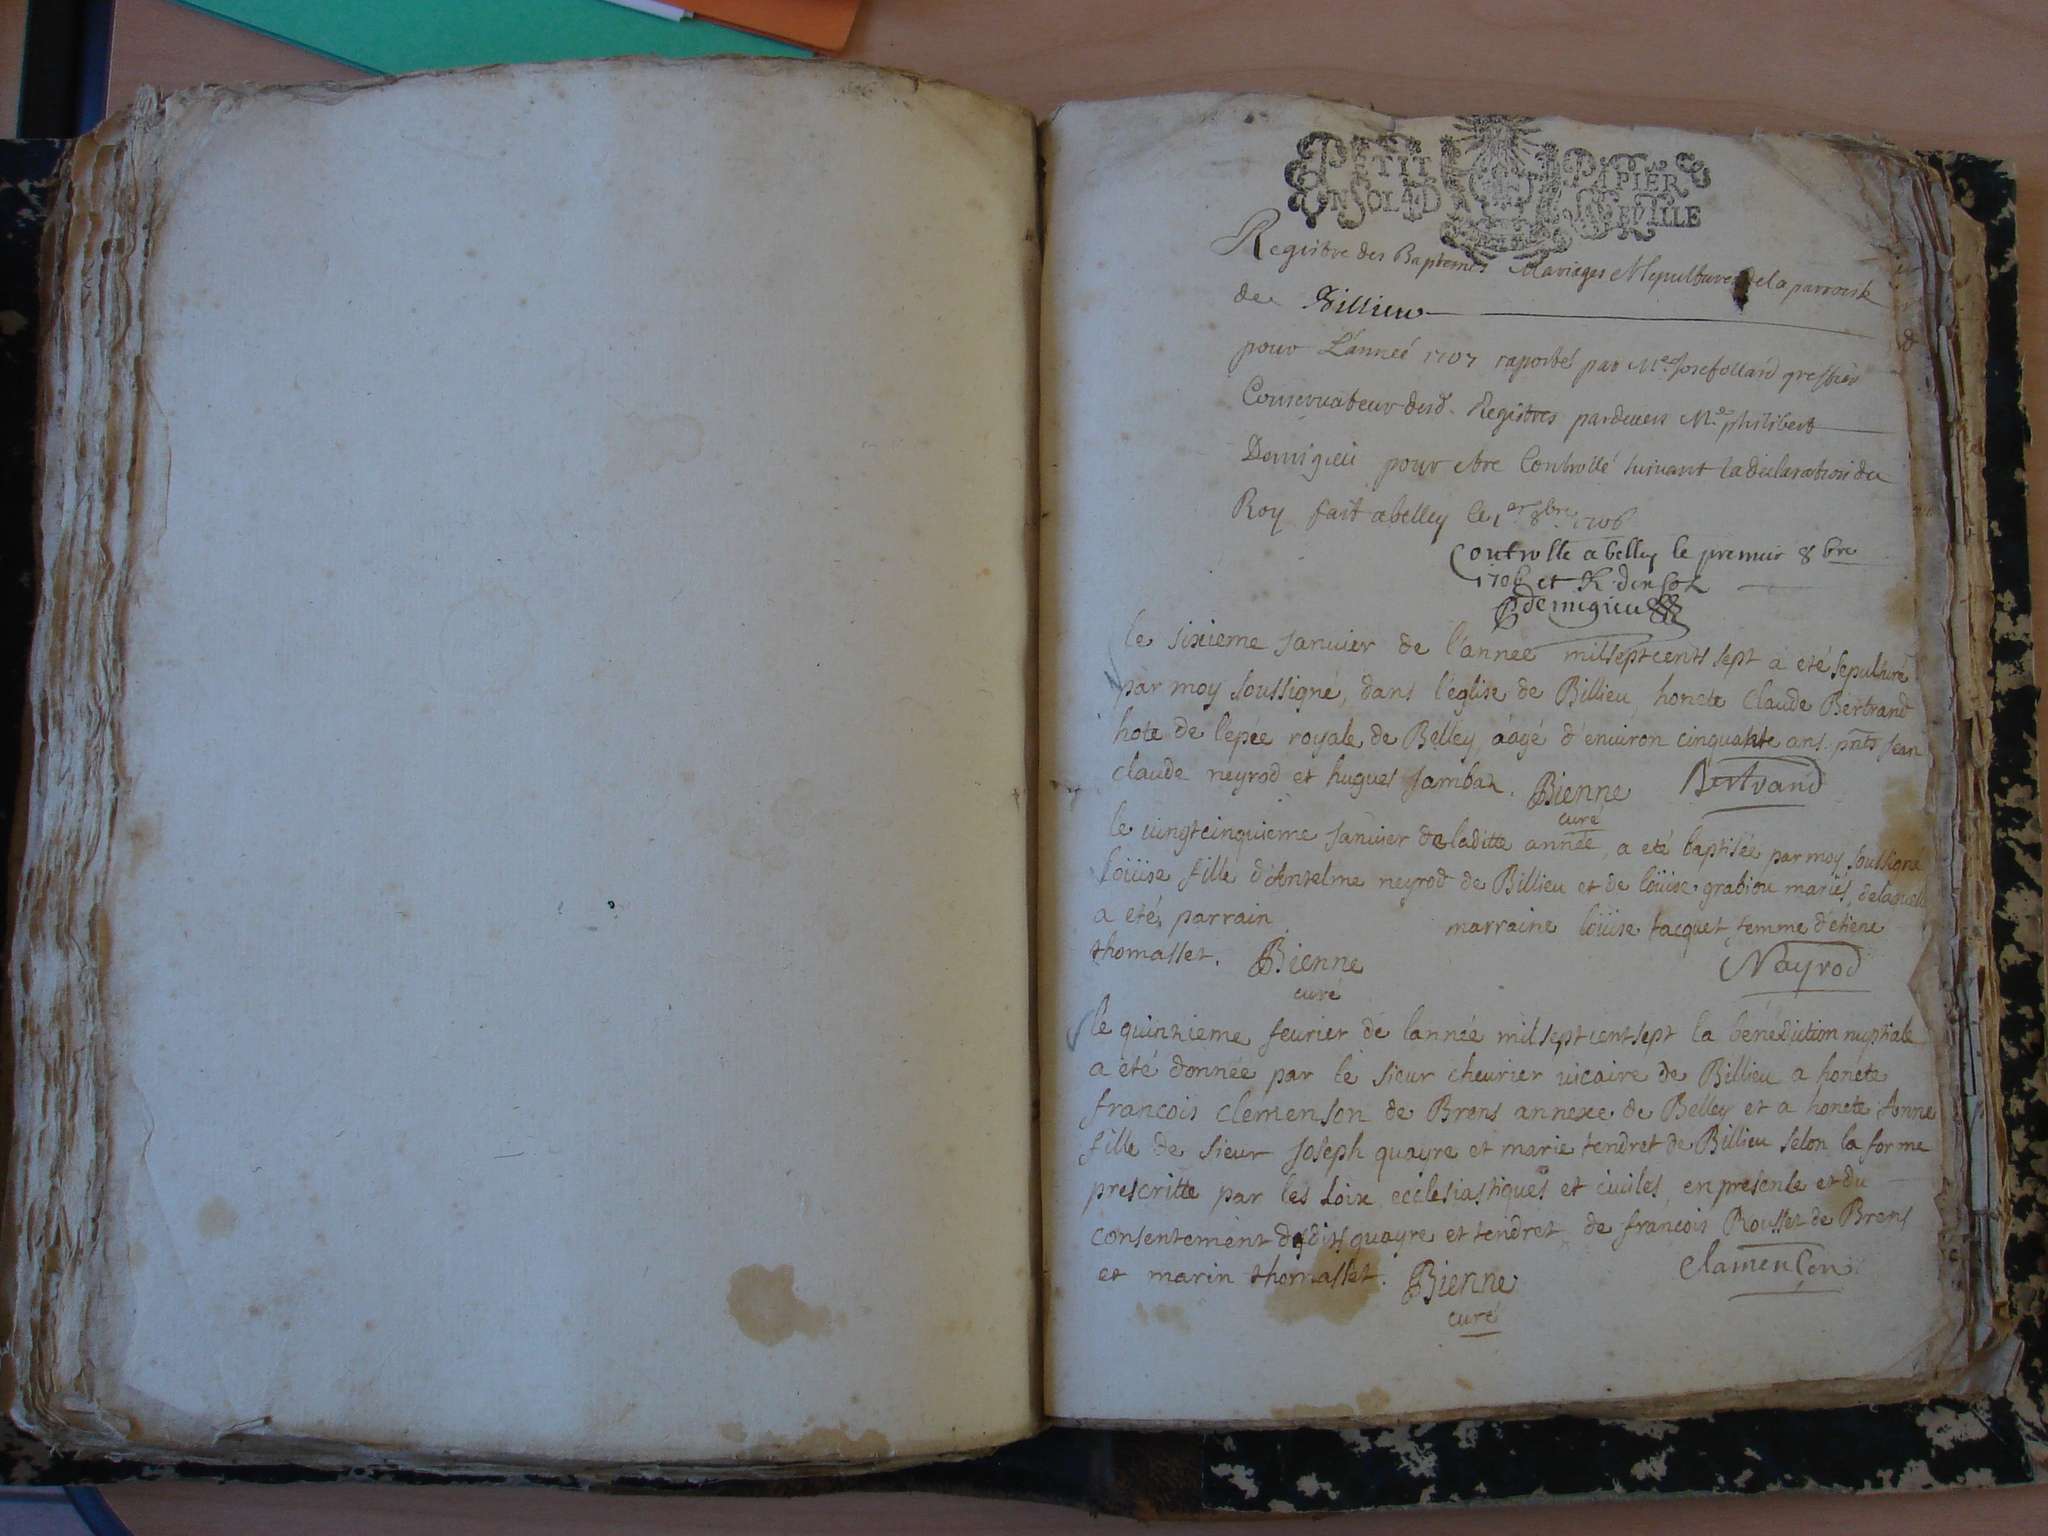 PETIT PAPIER
UN SOL 4 D
Registre des Baptemes Mariages et sepultures de la parroisse
de Billieu
pour L'anneé 1707 raportés par Me Josef ollard greffier
Conservateur desd. Registres pardevers Me philibert
Demigieu pour etre Controllé suivant la declaration du
Roy fait a belley le 1er 8bre 1706
Controlle a belley le premier 8bre
1706 et R dix sols
demigieu
le sixieme janvier de l'année milseptcents sept a eté sepulturé
par moy soussigné, dans l'eglise de Billieu, honete Claude Bertrand
hote de l'epée royale de Belley, aâgé d'environ cinquante ans. pnts jean
claude neyrod et hugues jambaz. Bienne Bertrand
curé
le vingtcinquieme janvier de laditte année, a eté baptisée par moy soussigné
loüise fille d'Antelme neyrod de Billieu et de loüise grabiou mariés, de laquelle
a eté parrain marraine loüise tacquet femme d'etiene
thomasset. Bienne Nayrod
curé
le quinzieme fevrier de lannée mil sept cent sept la bénédiction nuptiale
a été donnée par le sieur chevrier vicaire de Billieu a honete
francois clemenson de Brens annexe de Belley et a honete Anne
fille de sieur Joseph quayre et marie tendret de Billieu selon la forme
prescritte par les Loix ecclesiastiques et civiles, en presence et du
consentement desdits quayre et tendret, de francois Rousset de Brens
et marin thomasset. Bienne Clamençon
curé